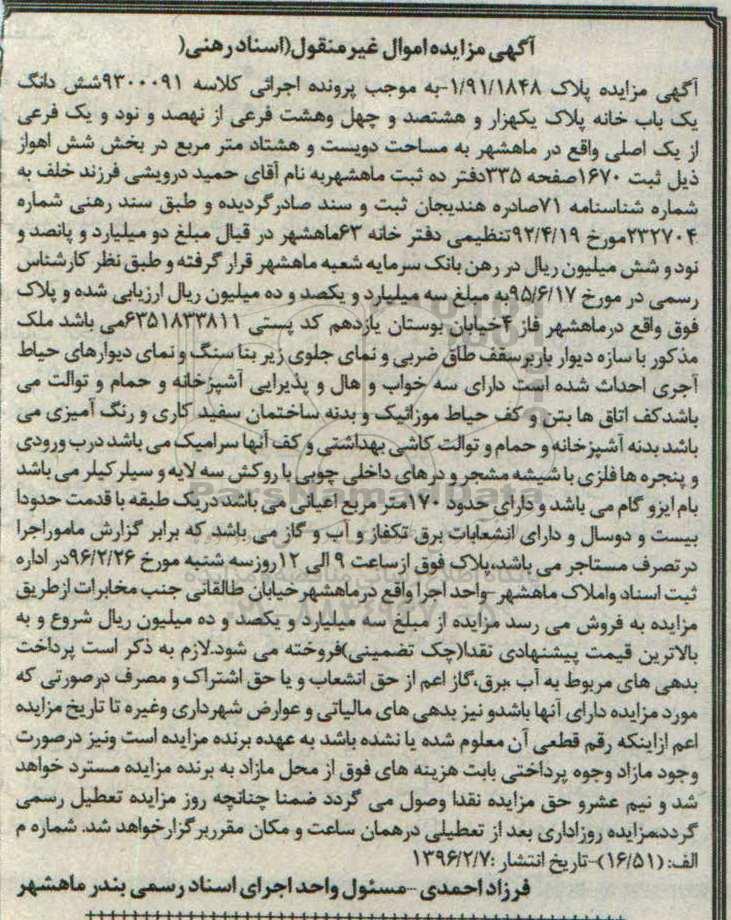 آگهی مزایده اموال غیر منقول(اسناد رهنی(
آگهی مزایده پلاک ۱/۹۱/۱۸۴۸-به موجب پرونده اجرائی کلاسه ۹۳۰۰۰۹۱شش دانگ
یک باب خانه پلاک یکهزار و هشتصد و چهل وهشت فرعی از نهصد و نود و یک فرعی
از یک اصلی واقع در ماهشهر به مساحت دویست و هشتاد متر مربع در بخش شش اهواز
ذیل ثبت ۱۶۷۰صفحه ۳۳۵دفتر ده ثبت ماهشهربه نام آقای حمید درویشی فرزند خلف به
شماره شناسنامه ۷۱صادره هندیجان ثبت و سند صادرگردیده و طبق سند رهنی شماره
۲۳۲۷۰۴مورخ ۹۲/۴/۱۹تنظیمی دفتر خانه ۶۳ماهشهر در قبال مبلغ دو میلیارد و پانصد و
نود و شش میلیون ریال در رهن بانک سرمایه شعبه ماهشهر قرار گرفته و طبق نظر کارشناس
رسمی در مورخ ۹۵/۶/۱۷به مبلغ سه میلیارد و یکصد و ده میلیون ریال ارزیابی شده و پلاک
فوق واقع درماهشهر فاز ۴خیابان بوستان یازدهم کد پستی ۶۳۵۱۸۳۳۸۱۱می باشد ملک
مذکور با سازه دیوار باربرسقف طاق ضربی و نمای جلوی زیر بنا سنگ و نمای دیوارهای حیاط
آجری احداث شده است دارای سه خواب و هال و پذیرایی آشپزخانه و حمام و توالت می
باشدکف اتاق ها بتن و کف حیاط موزائیک و بدنه ساختمان سفید کاری و رنگ آمیزی می
باشد بدنه آشپزخانه و حمام و توالت کاشی بهداشتی و کف آنها سرامیک می باشد درب ورودی
و پنجره ها فلزی با شیشه مشجر و درهای داخلی چوبی با روکش سه لایه و سیلر کیلر می باشد
بام ایزو گام می باشد و دارای حدود ۱۷۰متر مربع اعیانی می باشد دریک طبقه با قدمت حدودا
بیست و دوسال و دارای انشعابات برق تکفاز و آب و گاز می باشد که برابر گزارش ماموراجرا
درتصرف مستاجر می باشد،پلاک فوق ازساعت ۹ الی ۱۲روزسه شنبه مورخ ۹۶/۲/۲۶در اداره
ثبت اسناد واملاک ماهشهر-واحد اجرا واقع درماهشهرخیابان طالقانی جنب مخابرات ازطریق
مزایده به فروش می رسد مزایده از مبلغ سه میلیارد و یکصد و ده میلیون ریال شروع و به
بالاترین قیمت پیشنهادی نقدا(چک تضمینی)فروخته می شود.لازم به ذکر است پرداخت
بدهی های مربوط به آب ،برق،گاز اعم از حق انشعاب و یا حق اشتراک و مصرف درصورتی که
مورد مزایده دارای آنها باشدو نیز بدهی های مالیاتی و عوارض شهرداری وغیره تا تاریخ مزایده
اعم ازاینکه رقم قطعی آن معلوم شده یا نشده باشد به عهده برنده مزایده است ونیز درصورت
وجود مازاد وجوه پرداختی بابت هزینه های فوق از محل مازاد به برنده مزایده مسترد خواهد
شد و نیم عشرو حق مزایده نقدا وصول می گردد ضمنا چنانچه روز مزایده تعطیل رسمی
گردد،مزایده روزاداری بعد از تعطیلی درهمان ساعت و مکان مقرربرگزارخواهد شد. شماره م
الف: (۱۶/۵۱)-تاریخ انتشار :۱۳۹۶/۲/۷
فرزاد احمدی -مسئول واحد اجرای اسناد رسمی بندر ماهشهر
ParsNamadData